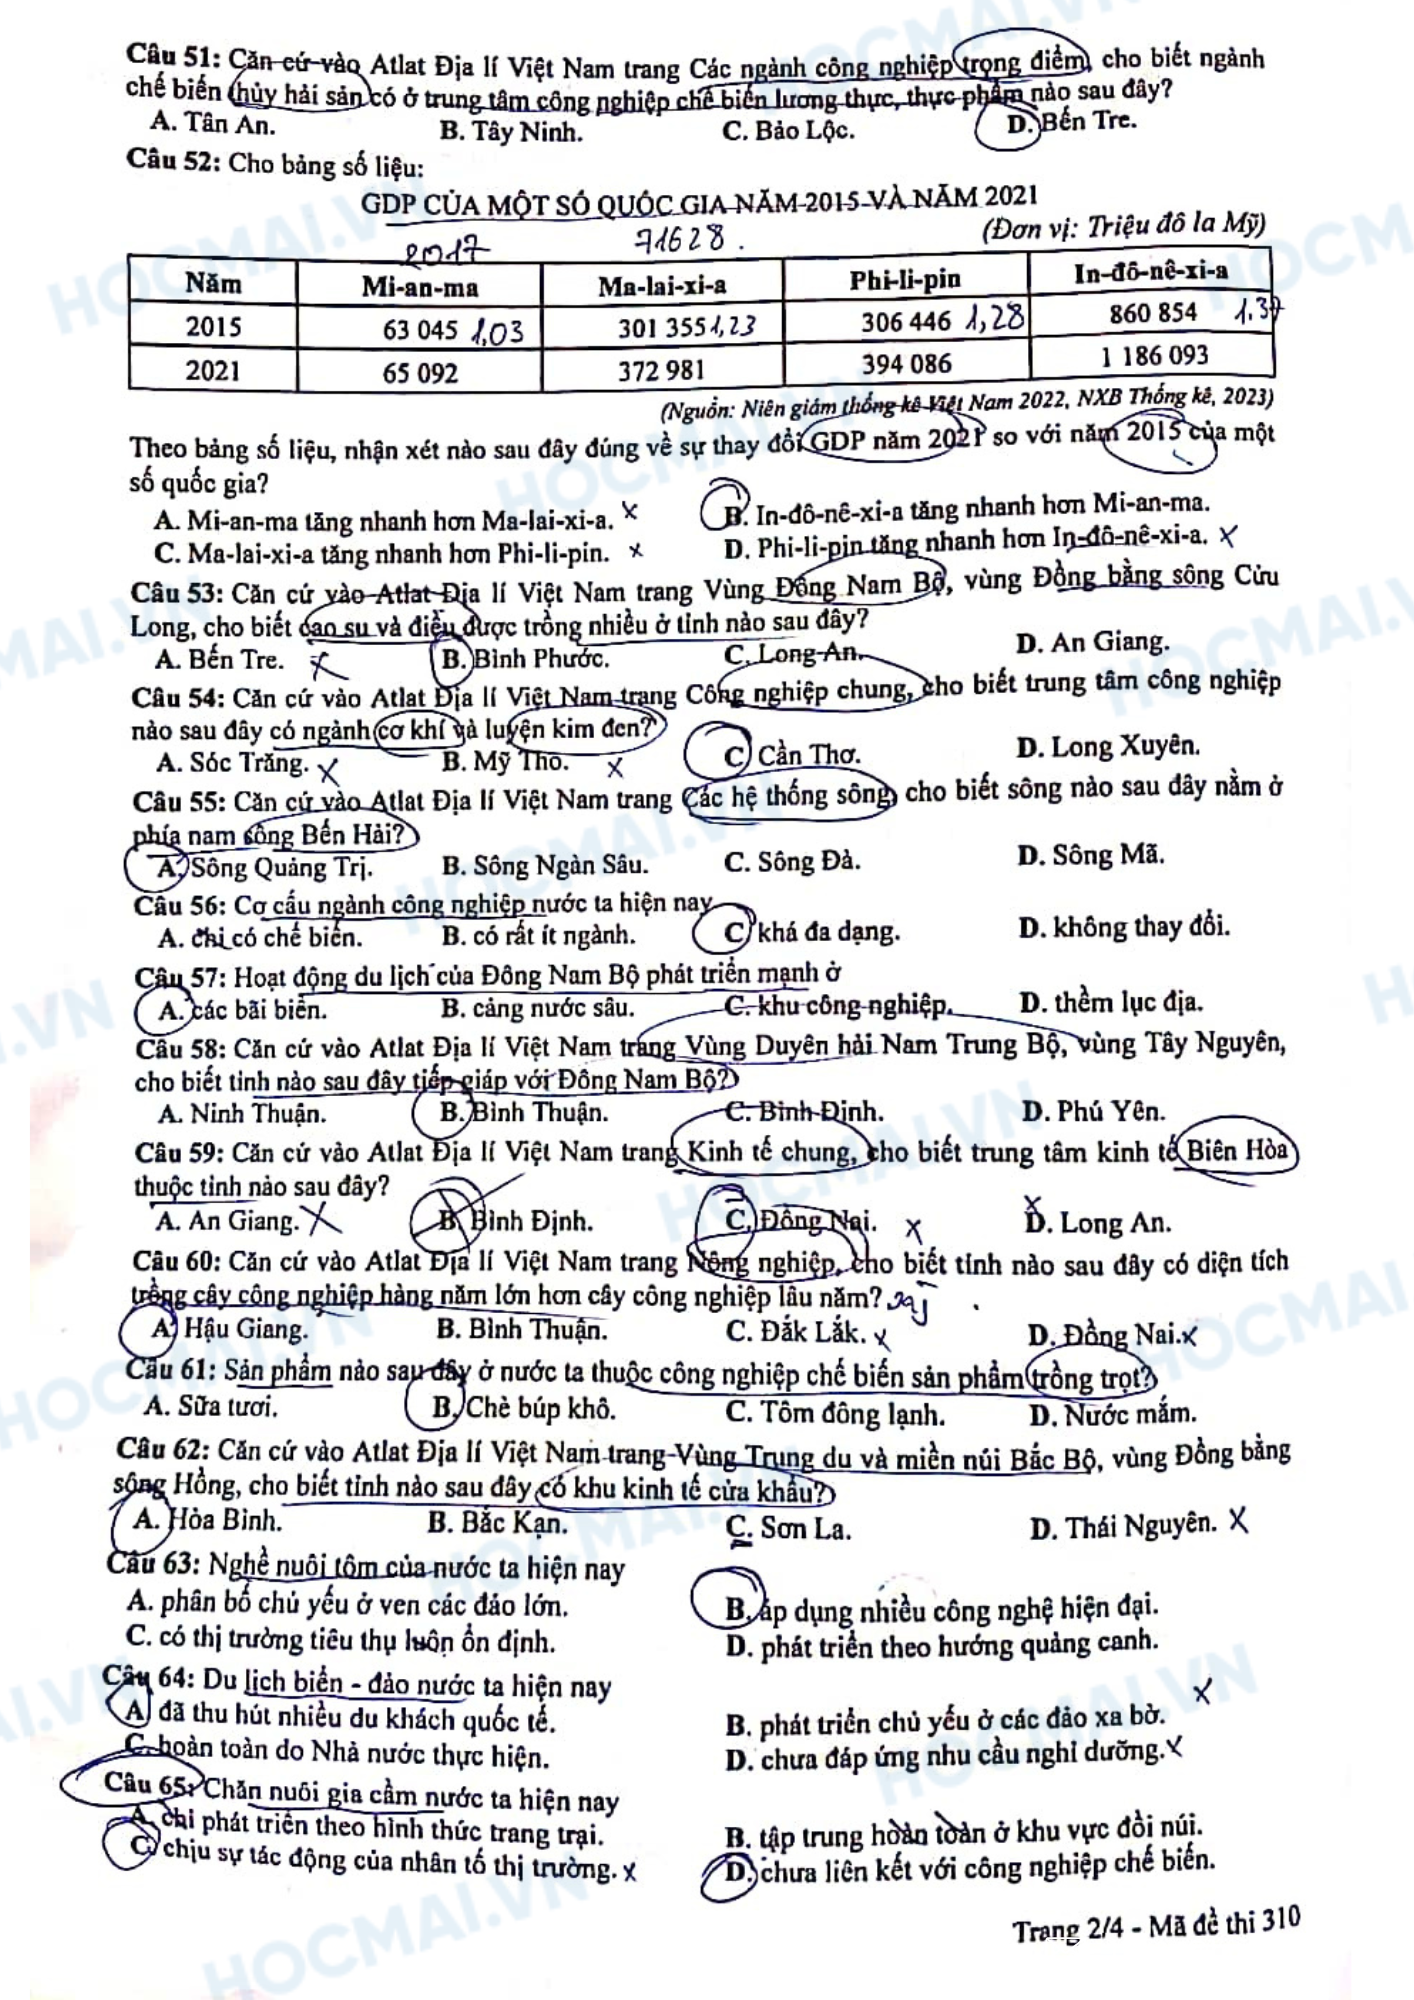 Câu 51: Căn cứ vào Atlat Địa lí Việt Nam trang Các ngành công nghiệp trọng điểm, cho biết ngành
chế biến thủy hải sản có ở trung tâm công nghiệp chế biến lương thực, thực phẩm nào sau đây?
A. Tân An. B. Tây Ninh. C. Bảo Lộc. D. Bến Tre.
Câu 52: Cho bảng số liệu:
GDP CỦA MỘT SỐ QUỐC GIA NĂM 2015 VÀ NĂM 2021
(Đơn vị: Triệu đô la Mỹ)
2017 71628.
Năm Mi-an-ma Ma-lai-xi-a Phi-li-pin In-đô-nê-xi-a
2015 63 045 1,03 301 355 1,23 306 446 1,28 860 854 1.37
2021 65 092 372 981 394 086 1 186 093
(Nguồn: Niên giám thống kê Việt Nam 2022, NXB Thống kê, 2023)
Theo bảng số liệu, nhận xét nào sau đây đúng về sự thay đổi GDP năm 2021 so với năm 2015 của một
số quốc gia?
A. Mi-an-ma tăng nhanh hơn Ma-lai-xi-a. x B. In-đô-nê-xi-a tăng nhanh hơn Mi-an-ma.
C. Ma-lai-xi-a tăng nhanh hơn Phi-li-pin. x D. Phi-li-pin tăng nhanh hơn In-đô-nê-xi-a. x
Câu 53: Căn cứ vào Atlat Địa lí Việt Nam trang Vùng Đông Nam Bộ, vùng Đồng bằng sông Cửu
Long, cho biết cao su và điều được trồng nhiều ở tỉnh nào sau đây?
A. Bến Tre. x B. Bình Phước. C. Long An. D. An Giang.
Câu 54: Căn cứ vào Atlat Địa lí Việt Nam trang Công nghiệp chung, cho biết trung tâm công nghiệp
nào sau đây có ngành cơ khí và luyện kim đen?
A. Sóc Trăng. x B. Mỹ Tho. x C. Cần Thơ. D. Long Xuyên.
Câu 55: Căn cứ vào Atlat Địa lí Việt Nam trang Các hệ thống sông, cho biết sông nào sau đây nằm ở
phía nam sông Bến Hải?
A. Sông Quảng Trị. B. Sông Ngàn Sâu. C. Sông Đà. D. Sông Mã.
Câu 56: Cơ cấu ngành công nghiệp nước ta hiện nay
A. chỉ có chế biến. B. có rất ít ngành. C. khá đa dạng. D. không thay đổi.
Câu 57: Hoạt động du lịch của Đông Nam Bộ phát triển mạnh ở
A. các bãi biển. B. cảng nước sâu. C. khu công nghiệp. D. thềm lục địa.
Câu 58: Căn cứ vào Atlat Địa lí Việt Nam trang Vùng Duyên hải Nam Trung Bộ, vùng Tây Nguyên,
cho biết tỉnh nào sau đây tiếp giáp với Đông Nam Bộ?
A. Ninh Thuận. B. Bình Thuận. C. Bình Định. D. Phú Yên.
Câu 59: Căn cứ vào Atlat Địa lí Việt Nam trang Kinh tế chung, cho biết trung tâm kinh tế Biên Hòa
thuộc tỉnh nào sau đây?
A. An Giang. x B. Bình Định. C. Đồng Nai. x D. Long An. x
Câu 60: Căn cứ vào Atlat Địa lí Việt Nam trang Nông nghiệp, cho biết tỉnh nào sau đây có diện tích
trồng cây công nghiệp hàng năm lớn hơn cây công nghiệp lâu năm?
A. Hậu Giang. B. Bình Thuận. C. Đắk Lắk. x D. Đồng Nai. x
Câu 61: Sản phẩm nào sau đây ở nước ta thuộc công nghiệp chế biến sản phẩm trồng trọt?
A. Sữa tươi. B. Chè búp khô. C. Tôm đông lạnh. D. Nước mắm.
Câu 62: Căn cứ vào Atlat Địa lí Việt Nam trang Vùng Trung du và miền núi Bắc Bộ, vùng Đồng bằng
sông Hồng, cho biết tỉnh nào sau đây có khu kinh tế cửa khẩu?
A. Hòa Bình. B. Bắc Kạn. C. Sơn La. D. Thái Nguyên. x
Câu 63: Nghề nuôi tôm của nước ta hiện nay
A. phân bố chủ yếu ở ven các đảo lớn. B. áp dụng nhiều công nghệ hiện đại.
C. có thị trường tiêu thụ luôn ổn định. D. phát triển theo hướng quảng canh.
Câu 64: Du lịch biển - đảo nước ta hiện nay
A. đã thu hút nhiều du khách quốc tế. B. phát triển chủ yếu ở các đảo xa bờ. x
C. hoàn toàn do Nhà nước thực hiện. D. chưa đáp ứng nhu cầu nghỉ dưỡng. x
Câu 65: Chăn nuôi gia cầm nước ta hiện nay
A. chỉ phát triển theo hình thức trang trại. B. tập trung hoàn toàn ở khu vực đồi núi.
C. chịu sự tác động của nhân tố thị trường. x D. chưa liên kết với công nghiệp chế biến.
Trang 2/4 - Mã đề thi 310
HOCMAI.VN